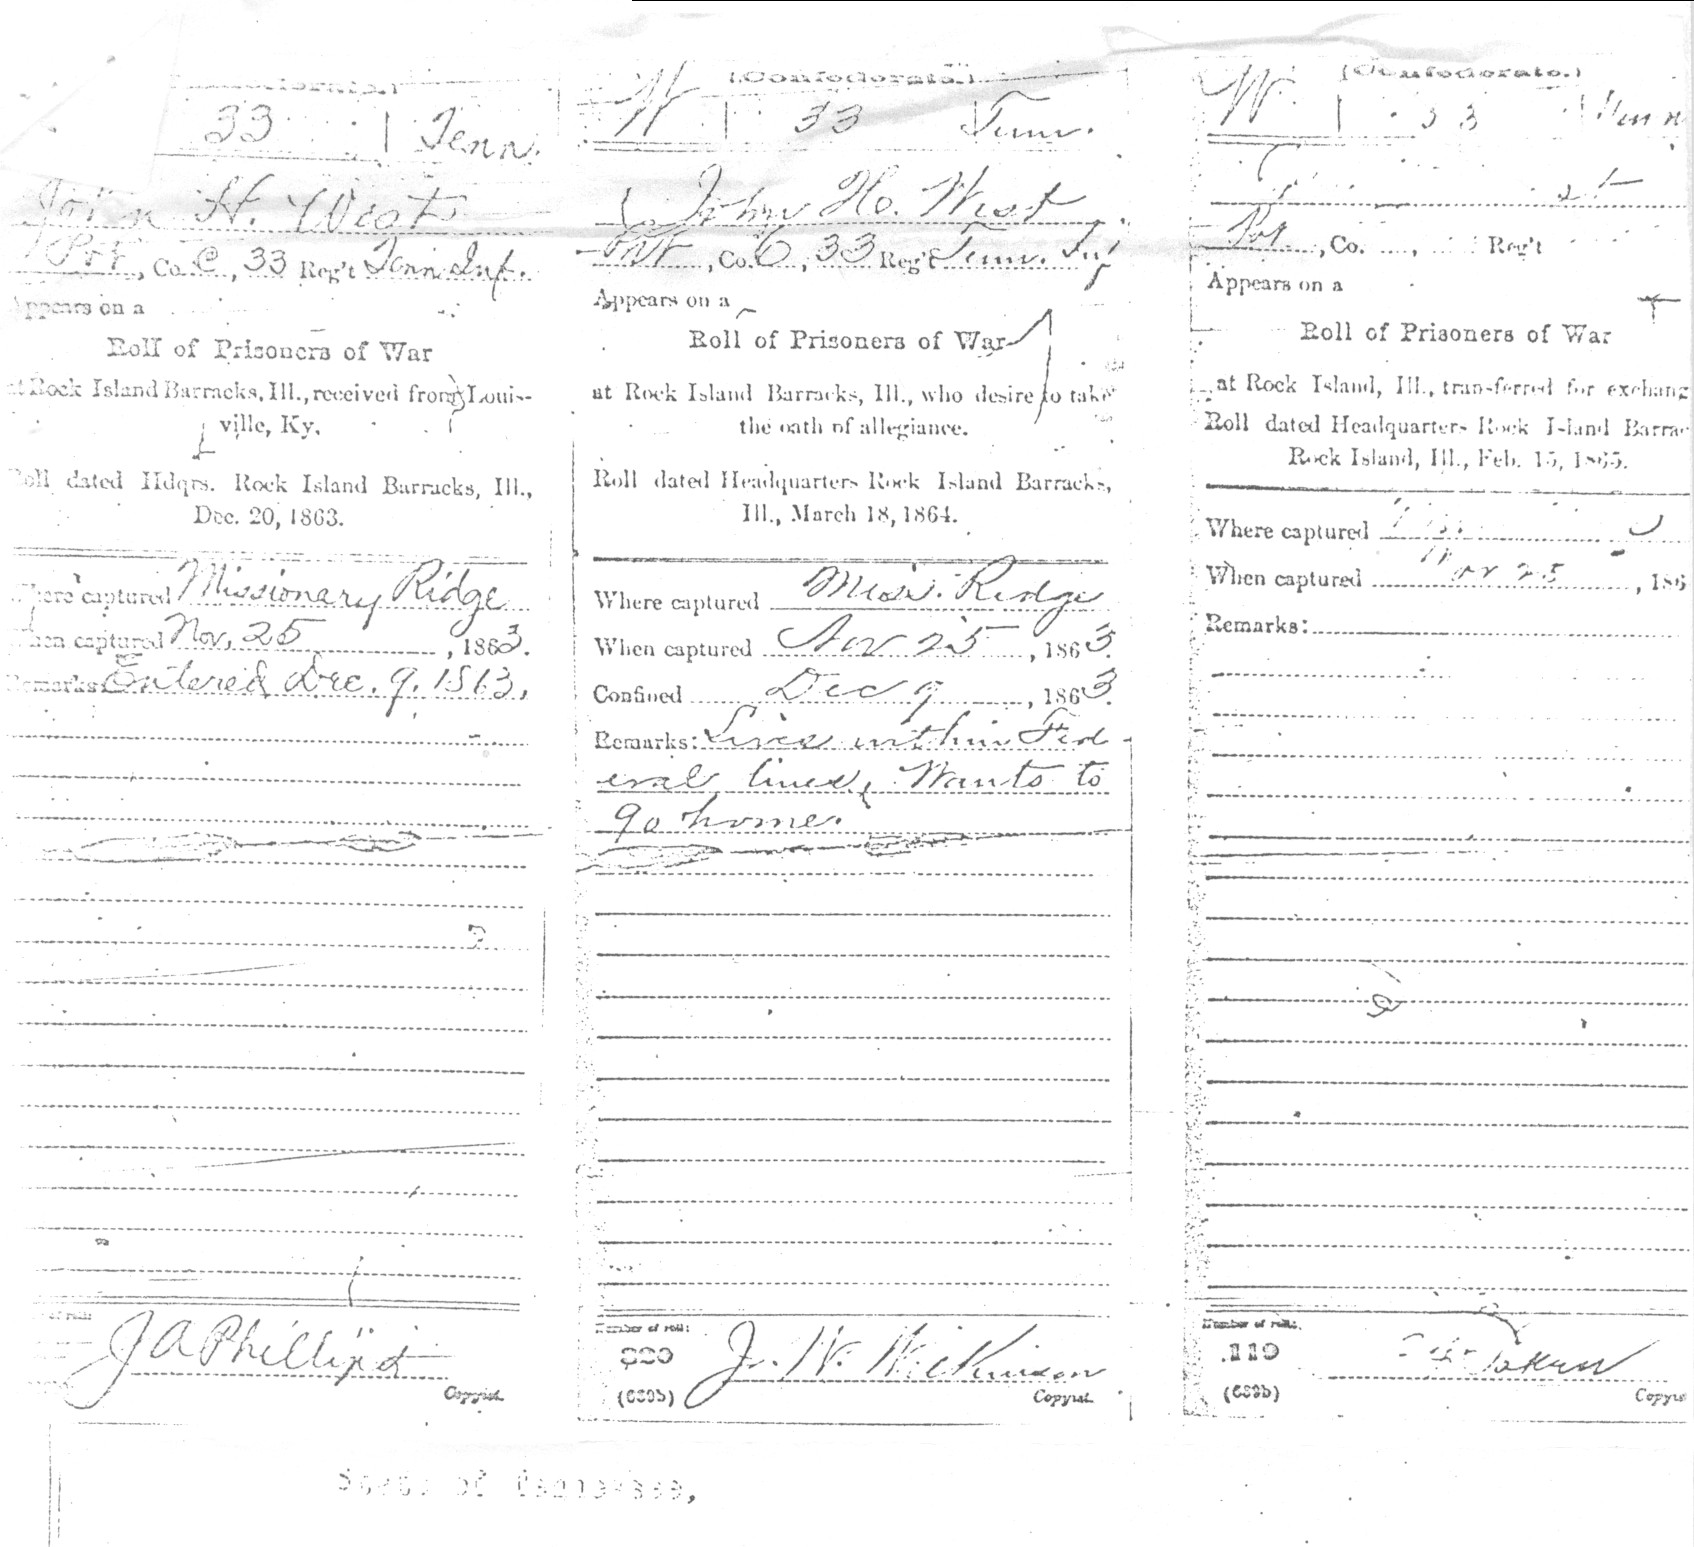 33 Tenn.
John H. West
Pvt, Co. C, 33 Reg't Tenn Inf.
Appears on a
Roll of Prisoners of War
at Rock Island Barracks, Ill., received from Louis-
ville, Ky.
Roll dated Hdqrs. Rock Island Barracks, Ill.,
Dec. 20, 1863.
Where captured Missionary Ridge
When captured Nov. 25, 1863.
Remarks: Entered Dec. 9. 1863.
of roll:
J A Phillips
Copyist.
(Confederate.)
W 33 Tenn.
John H. West
Pvt, Co. C, 33 Reg't Tenn. Inf
Appears on a
Roll of Prisoners of War
at Rock Island Barracks, Ill., who desire to take
the oath of allegiance.
Roll dated Headquarters Rock Island Barracks,
Ill., March 18, 1864.
Where captured Miss. Ridge
When captured Nov 25, 1863.
Confined Dec 9, 1863.
Remarks: Lives within Fed
eral lines, Wants to
go home.
Number of roll:
(639b)
J. W. Wilkinson
Copyist.
(Confederate.)
W 33 Tenn
Pvt, Co. , Reg't
Appears on a
Roll of Prisoners of War
at Rock Island, Ill., transferred for exchang
Roll dated Headquarters Rock Island Barrac
Rock Island, Ill., Feb. 15, 1865.
Where captured
When captured Nov 25, 186
Remarks:
Number of roll:
119
(639b)
Copyis
State of Tennessee,